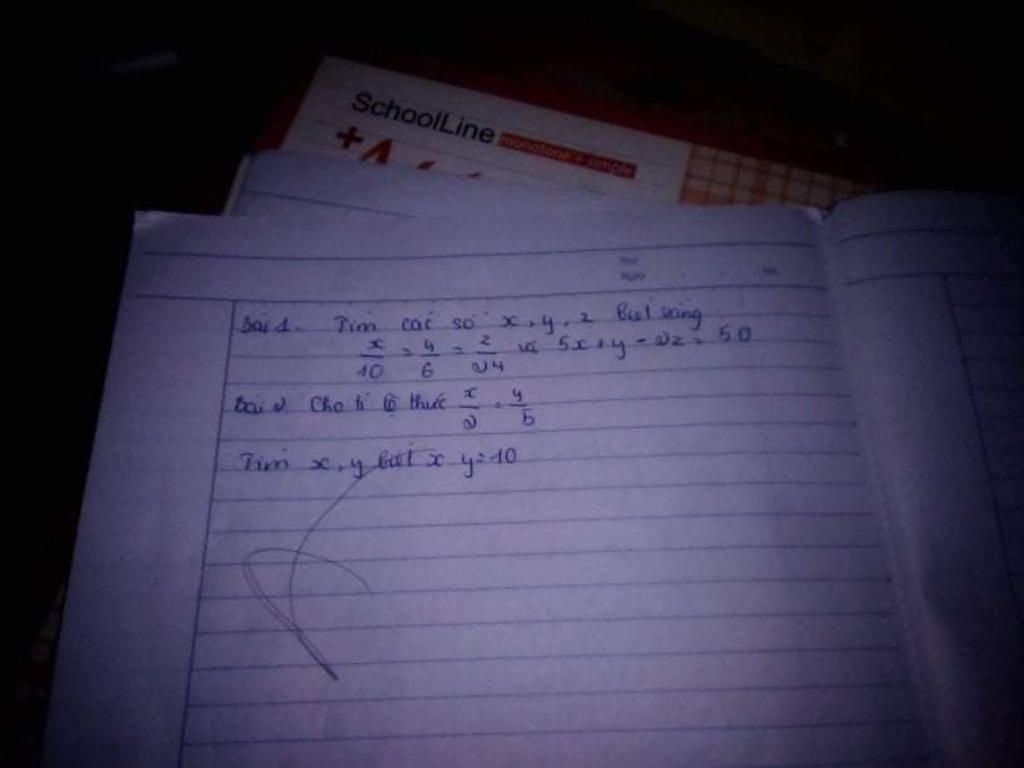 SchoolLine
monotone + simple
Thứ
Ngày
Bài 1. Tìm các số x, y, z biết rằng
x/10 = y/6 = z/24 và 5x + y - 2z = 50
Bài 2 Cho tỉ lệ thức x/2 = y/5
Tìm x, y biết x y = 10